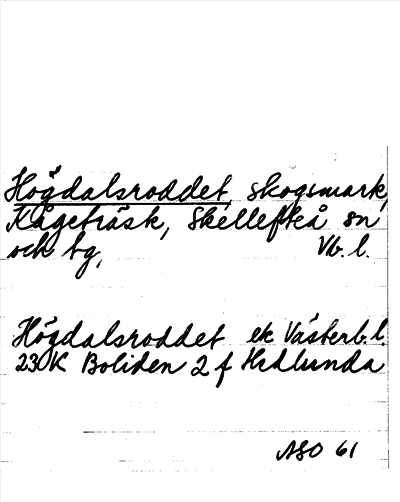 Högdalsroddet, skogsmark,
Kågeträsk, Skellefteå sn
och tg, Vb. l.
Högdalsroddet ek Västerb. l.
23 K Boliden 2 f Hedlunda
ASO 61